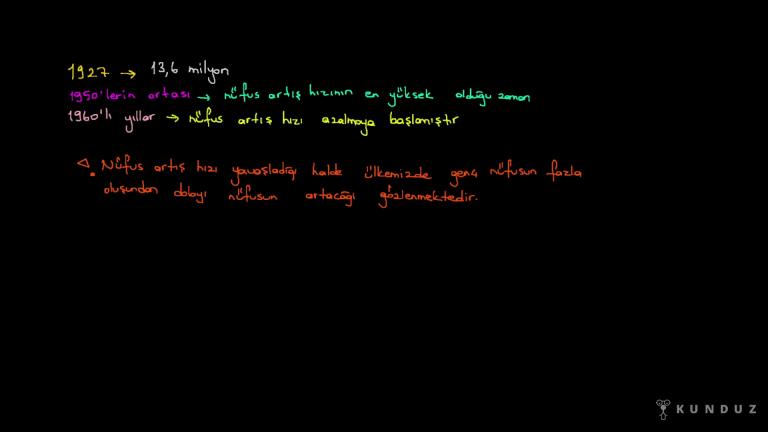 1927 → 13,6 milyon
1950'lerin ortası → nüfus artış hızının en yüksek olduğu zaman
1960'lı yıllar → nüfus artış hızı azalmaya başlamıştır
Nüfus artış hızı yavaşladığı halde ülkemizde genç nüfusun fazla
oluşundan dolayı nüfusun artacağı gözlenmektedir.
KUNDUZ